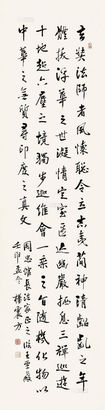 玄奘法師者夙懷聰令立志夷簡神清齠齔之年
體拔浮華之世凝情定室匿跡幽巖栖息三禪巡遊
十地超六塵之境獨步迦維會一乘之旨隨機化物以
中華之無質尋印度之真文